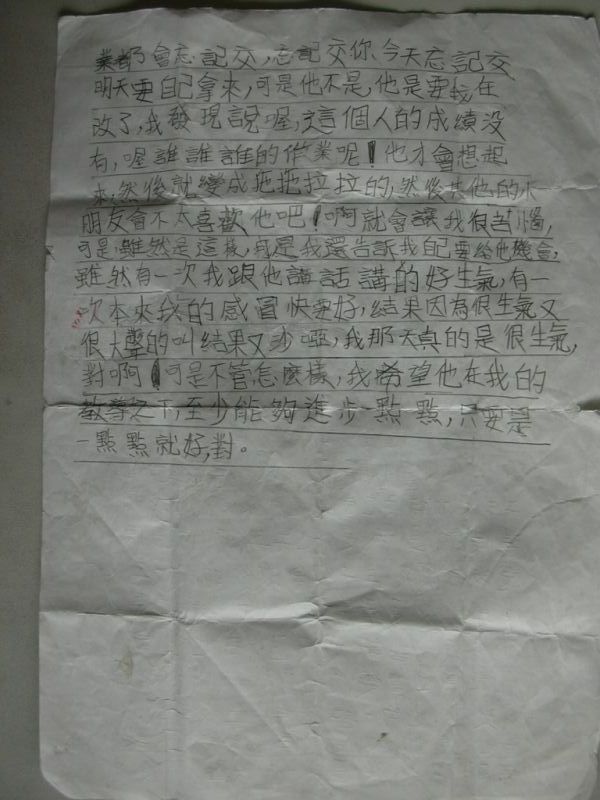 業都會忘記交，忘記交你、今天忘記交
明天要自己拿來，可是他不是，他是要我在
改了，我發現說喔，這個人的成績沒
有，喔誰誰誰的作業呢，他才會想起
來，然後就變成拖拖拉拉的，然後其他的小
朋友會不太喜歡他吧，啊就會讓我很苦惱，
可是雖然是這樣，可是我還告訴我自己要給他機會，
雖然有一次我跟他講話講的好生氣，有一
次本來我的感冒快要好，結果因為很生氣又
很大聲的叫結果又沙啞，我那天真的是很生氣，
對啊，可是不管怎麼樣，我希望他在我的
教導之下，至少能夠進步一點點，只要是
一點點就好，對。